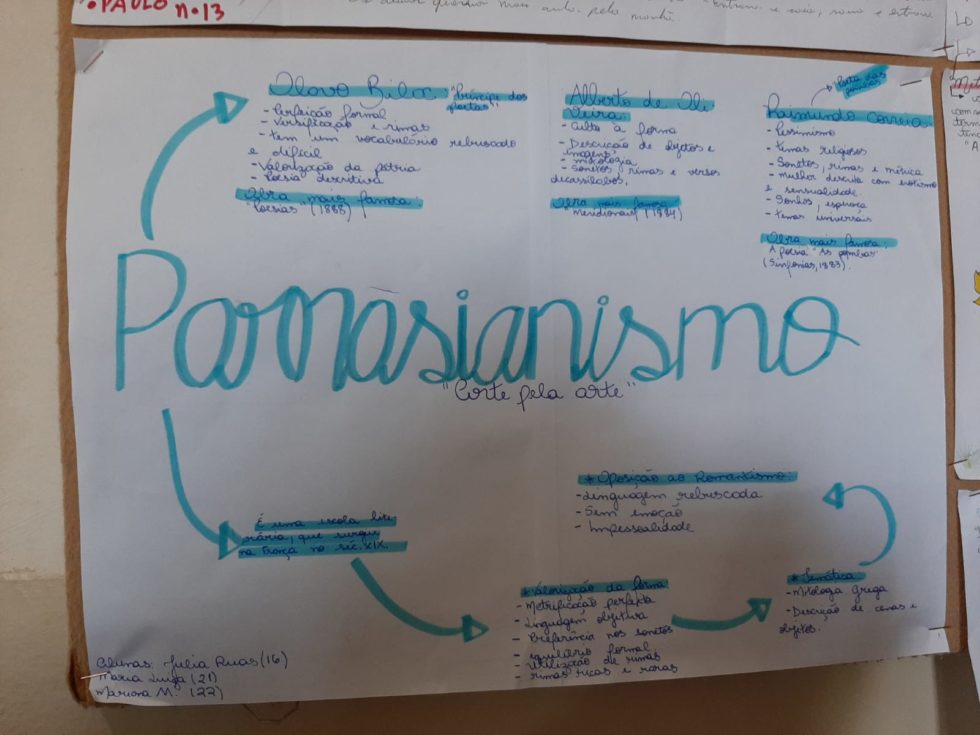 PAULO
n.13
Olavo Bilac: "Príncipe dos
poetas"
- Perfeição formal
- Versificação e rimas
- tem um vocabulário rebuscado
e difícil
- Valorização da pátria
- Poesia descritiva
Obra mais famosa:
"Poesias" (1888)
Alberto de Oli
veira:
- Culto à forma
- Descrição de objetos e
imagens
- mitologia
- Sonetos, rimas e versos
decassílabos,
Obra mais famosa:
"Meridionais" (1884)
"Poeta das
pombas"
Raimundo Correia:
- Pessimismo
- temas religosos
- Sonetos, rimas e métrica
- mulher descrita com erotismo
e sensualidade.
- Sonhos,
- temas universais
Obra mais famosa:
A poesia "As pombas"
(Sinfonias, 1883).
Parnasianismo
"arte pela arte"
É uma escola lite
rária, que surgiu
na França no séc. XIX.
* Valorização da forma
- Metrificação perfeita
- Linguagem objetiva
- Preferência nos sonetos
- equilíbrio formal
- Utilização de rimas
- rimas ricas e raras
* Temática
- Mitologia Grega
- Descrição de cenas e
objetos.
* Oposição ao Romantismo:
- Linguagem rebuscada
- Sem emoção
- Impessoalidade
Alunas: Julia Ruas (16)
Maria Luiza (21)
Mariana M. (22)